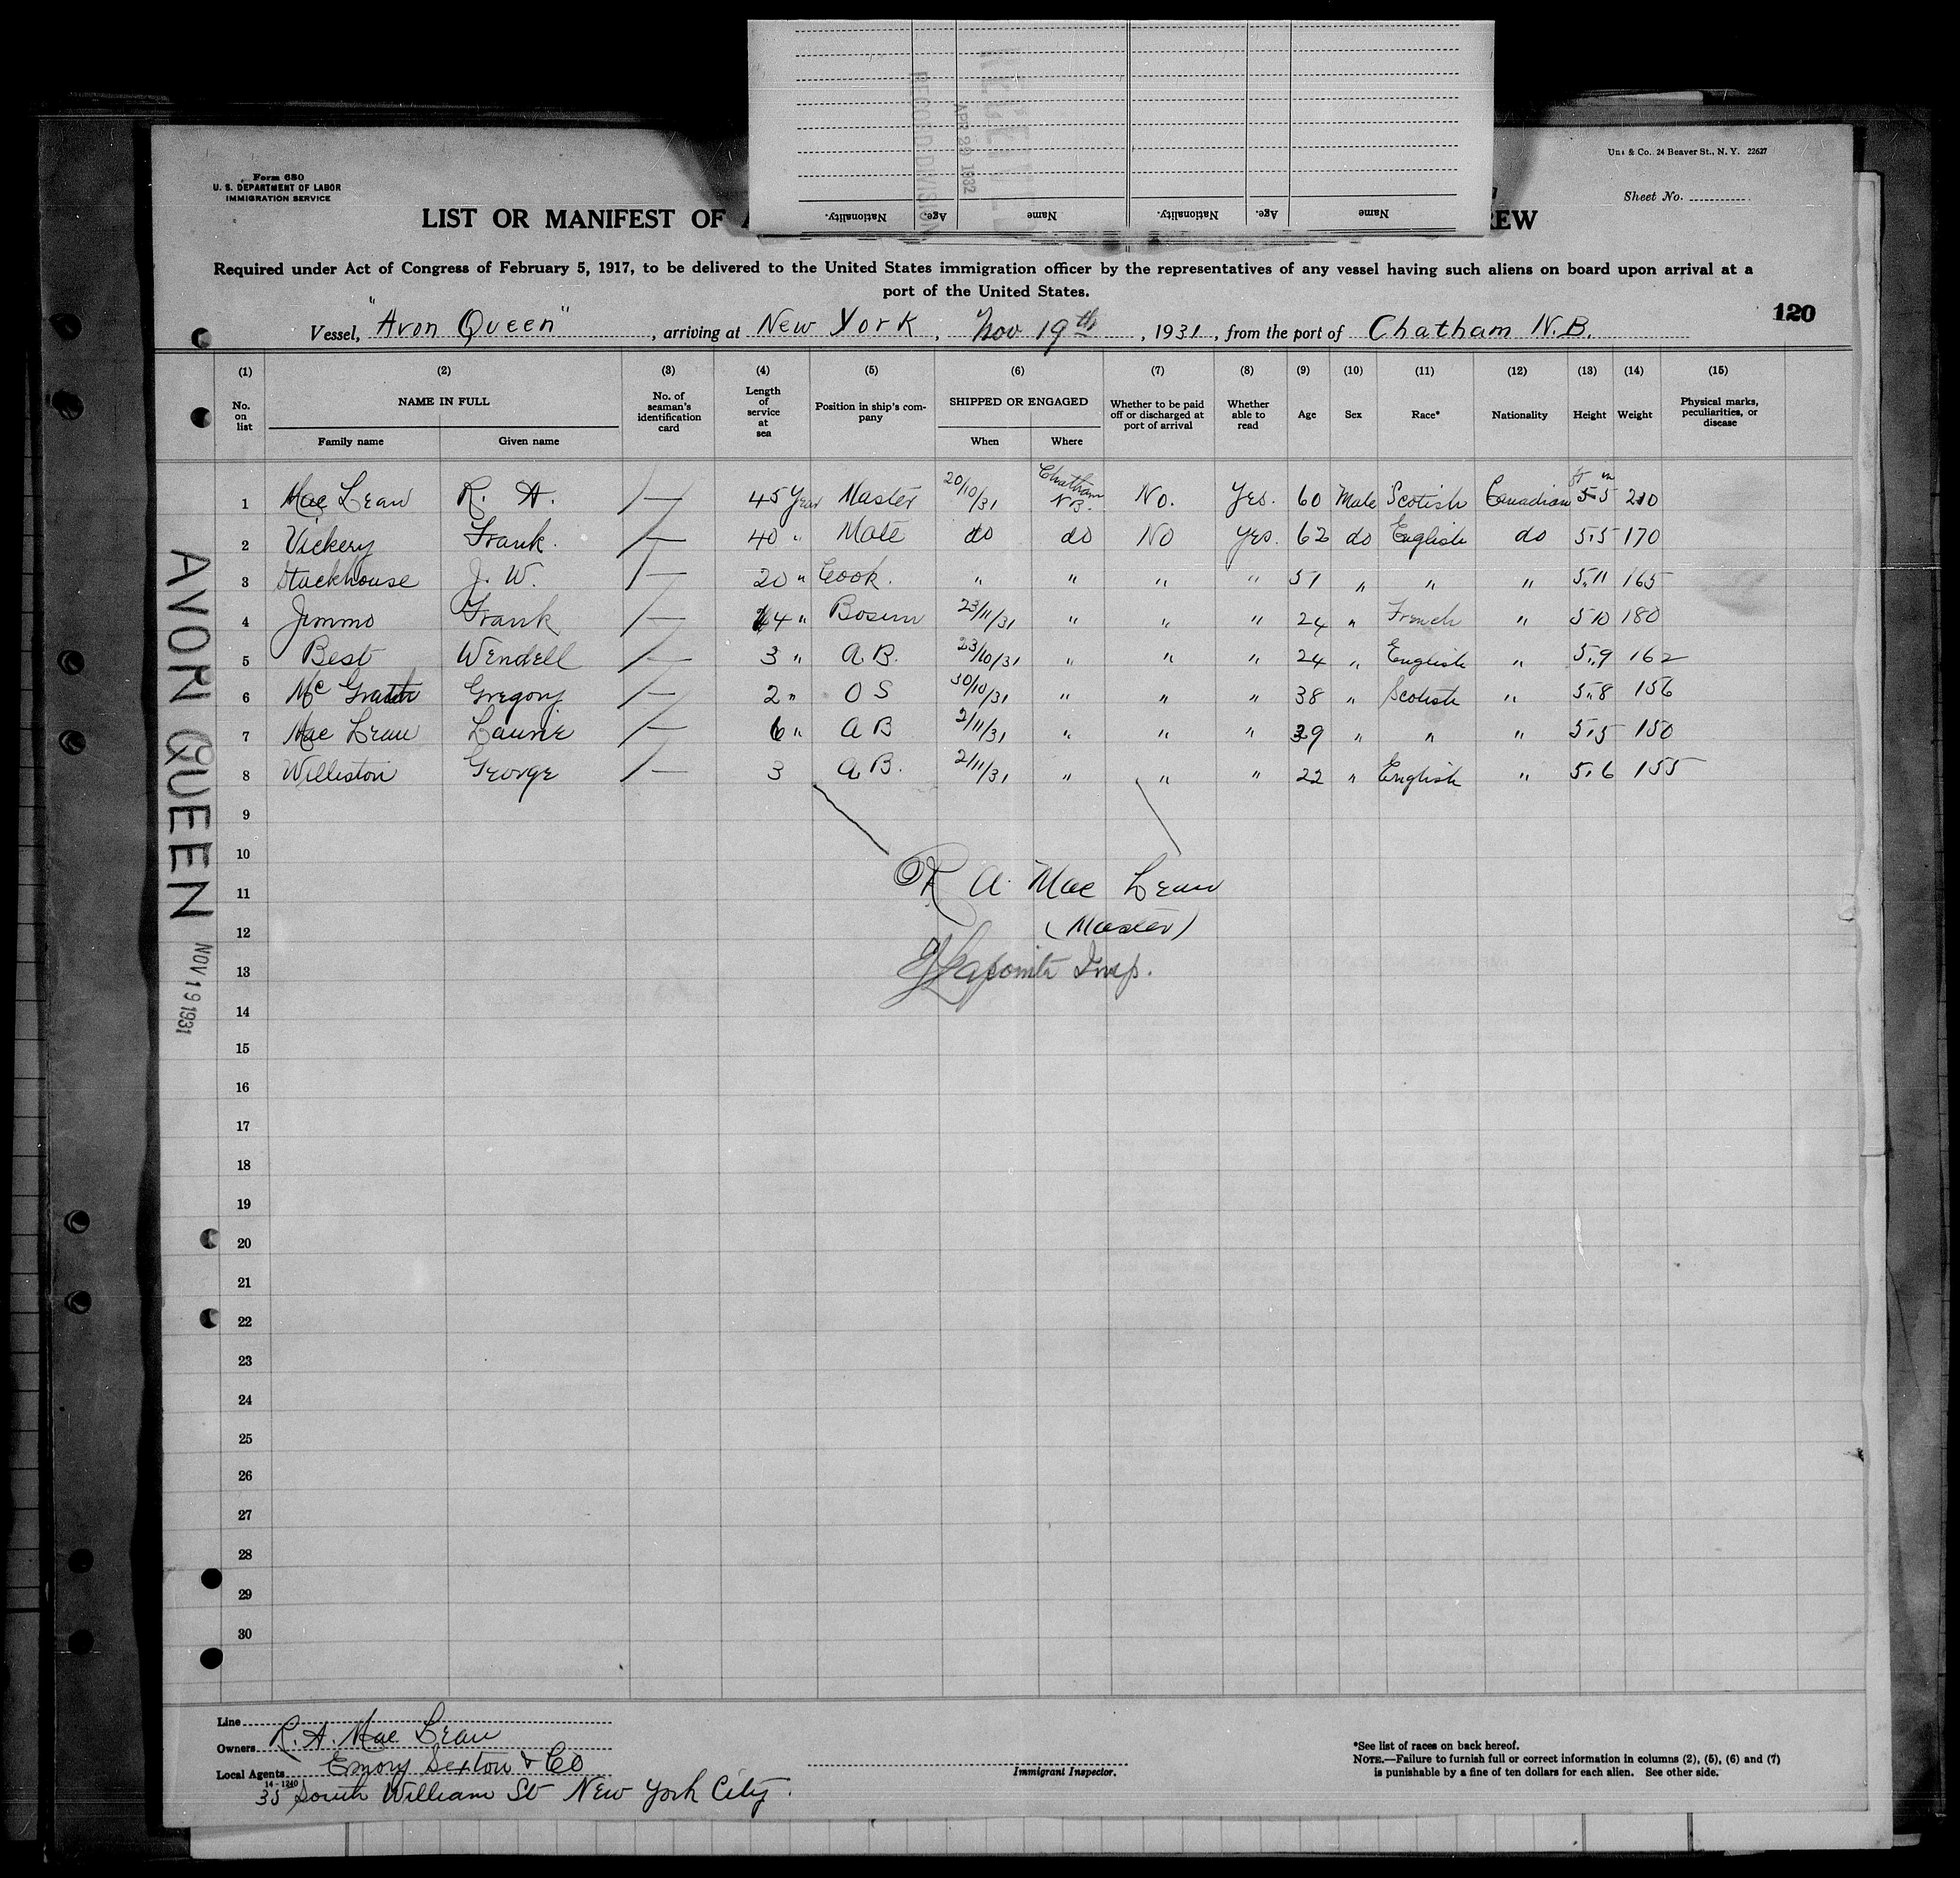 Nationality. Age. Name Nationality. Age. Name
RECORD DIVISION
APR 29 1932
Form 680
U. S. DEPARTMENT OF LABOR
IMMIGRATION SERVICE
& Co. 24 Beaver St., N. Y. 22627
Sheet No.
LIST OR MANIFEST OF
EW
Required under Act of Congress of February 5, 1917, to be delivered to the United States immigration officer by the representatives of any vessel having such aliens on board upon arrival at a
port of the United States.
120
Vessel, "Avon Queen", arriving at New York, Nov 19th, 1931, from the port of Chatham N.B.
(1) (2) (3) (4) (5) (6) (7) (8) (9) (10) (11) (12) (13) (14) (15)
No. on list NAME IN FULL Family name Given name No. of seaman's identification card Length of service at sea Position in ship's company SHIPPED OR ENGAGED When Where Whether to be paid off or discharged at port of arrival Whether able to read Age Sex Race* Nationality Height Weight Physical marks, peculiarities, or disease
ft in
1 Mac Lean R. A. / — 45 Year Master 20/10/31 Chatham N.B. No. Yes. 60 Male Scotish Canadian 5-5 210
2 Vickery Frank. / — 40 " Mate do do No Yes. 62 do English do 5.5 170
3 Stackhouse J. W. / — 20 " Cook. " " " " 51 " " " 5.11 165
4 Jimmo Frank / — 4 " Bosun 23/11/31 " " " 24 " French " 5 10 180
5 Best Wendell / — 3 " A.B. 23/10/31 " " " 24 " English " 5.9 162
6 Mc Grath Gregory / — 2 " O S 30/10/31 " " " 38 " Scotish " 5.8 156
7 Mac Lean Laurie / — 6 " A B 2/11/31 " " " 39 " " " 5.5 150
8 Williston George / — 3 A.B. 2/11/31 " " " 22 " English " 5.6 155
9
10
11
12
13
14
15
16
17
18
19
20
21
22
23
24
25
26
27
28
29
30
R A. Mac Lean
(Master)
Insp.
AVON QUEEN
NOV 19 1931
Line
Owners R. A. Mac Lean
Local Agents Emory Sexton & Co
14-1240
35 South William St New York City.
Immigrant Inspector.
*See list of races on back hereof.
NOTE.—Failure to furnish full or correct information in columns (2), (5), (6) and (7)
is punishable by a fine of ten dollars for each alien. See other side.